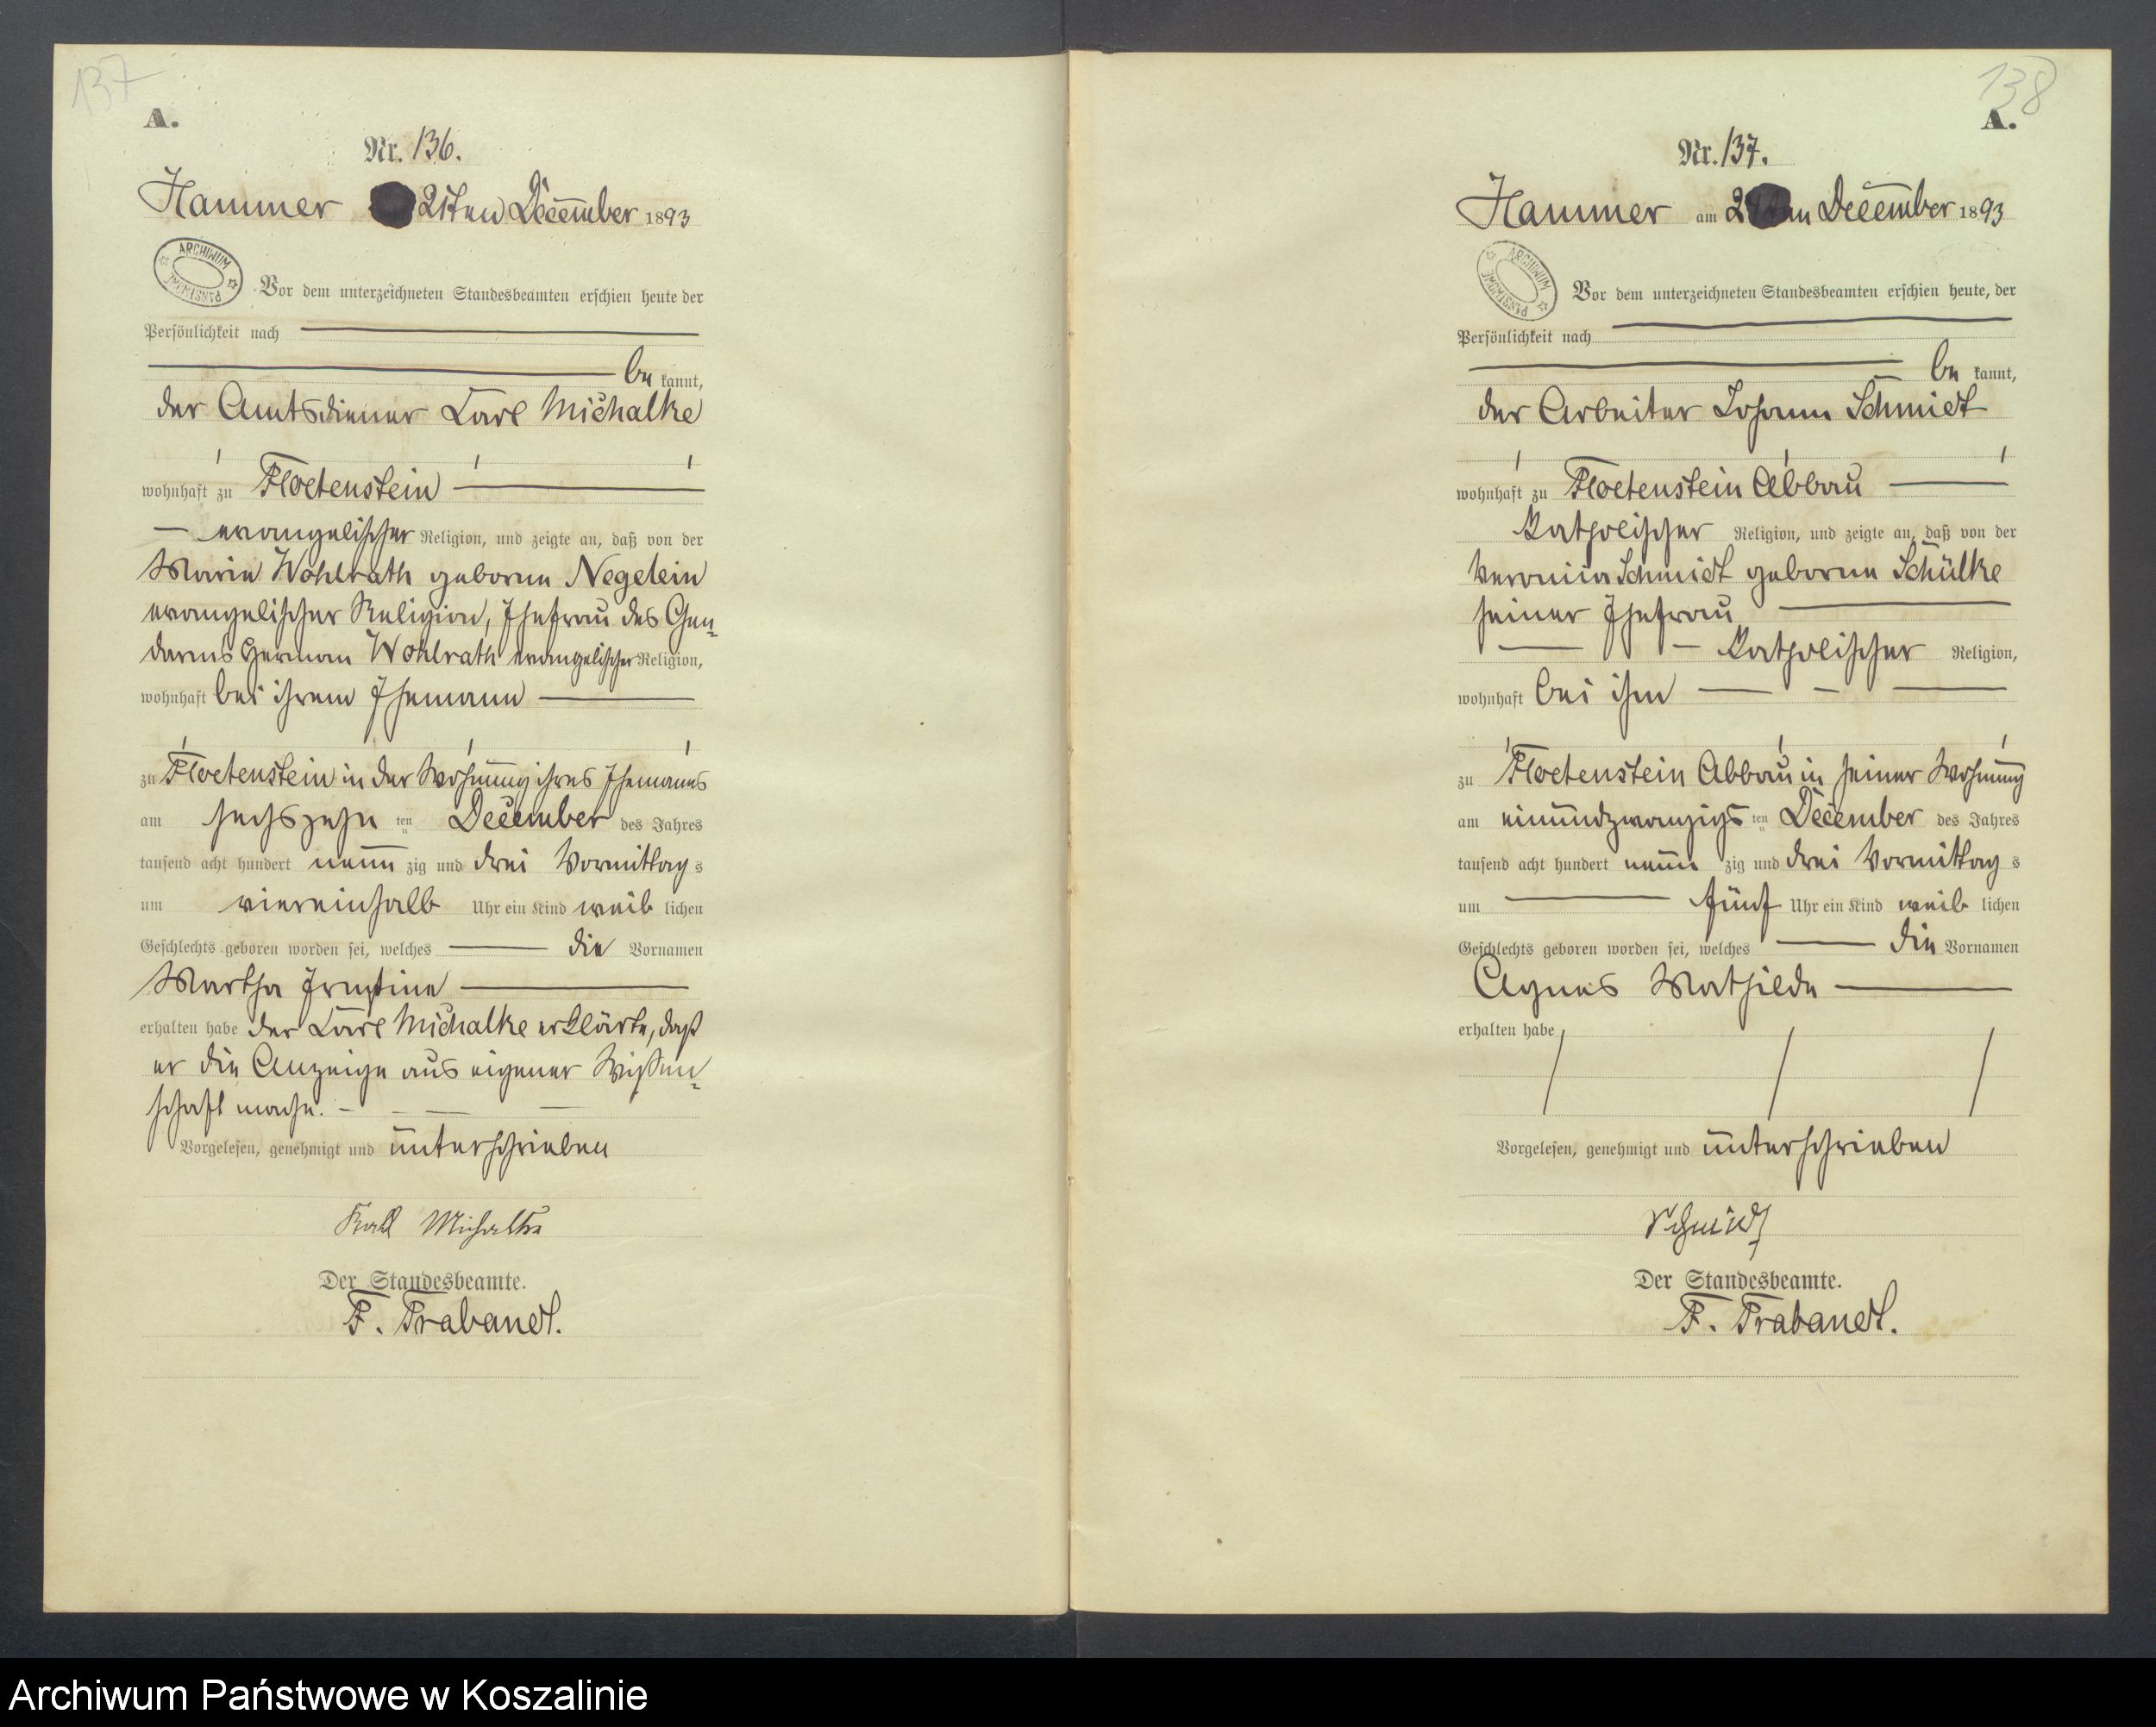 137
A.
Nr. 136.
Hammer 21ten December 1893
ARCHIWUM PAŃSTWOWE
Vor dem unterzeichneten Standesbeamten erschien heute der
Persönlichkeit nach
be kannt,
der Amtsdiener Carl Michalke
wohnhaft zu Floetenstein
evangelischer Religion, und zeigte an, daß von der
Marie Wohlrath geborne Negelein
evangelischer Religion, Ehefrau des Gen-
darms Herman Wohlrath evangelischer Religion,
wohnhaft bei ihrem Ehemann
zu Floetenstein in der Wohnung ihres Ehemanns
am sechszehn ten December des Jahres
tausend acht hundert neun zig und drei Vormittag s
um viereinhalb Uhr ein Kind weib lichen
Geschlechts geboren worden sei, welches die Vornamen
Martha Ernstine
erhalten habe der Carl Michalke erklärte, daß
er die Anzeige aus eigener Wissen-
schaft mache.
Vorgelesen, genehmigt und unterschrieben
Karl Michalke
Der Standesbeamte.
F. Trabandt.
138
A.
Nr. 137.
Hammer am 2 en December 1893
ARCHIWUM PAŃSTWOWE
Vor dem unterzeichneten Standesbeamten erschien heute, der
Persönlichkeit nach
be kannt,
der Arbeiter Johann Schmidt
wohnhaft zu Floetenstein Abbau
katholischer Religion, und zeigte an, daß von der
Veronica Schmidt geborne Schülke
seiner Ehefrau
katholischer Religion,
wohnhaft bei ihm
zu Floetenstein Abbau in seiner Wohnung
am einundzwanzigs ten December des Jahres
tausend acht hundert neun zig und drei Vormittag s
um fünf Uhr ein Kind weib lichen
Geschlechts geboren worden sei, welches die Vornamen
Agnes Mathilde
erhalten habe
Vorgelesen, genehmigt und unterschrieben
Schmidt
Der Standesbeamte.
F. Trabandt.
Archiwum Państwowe w Koszalinie